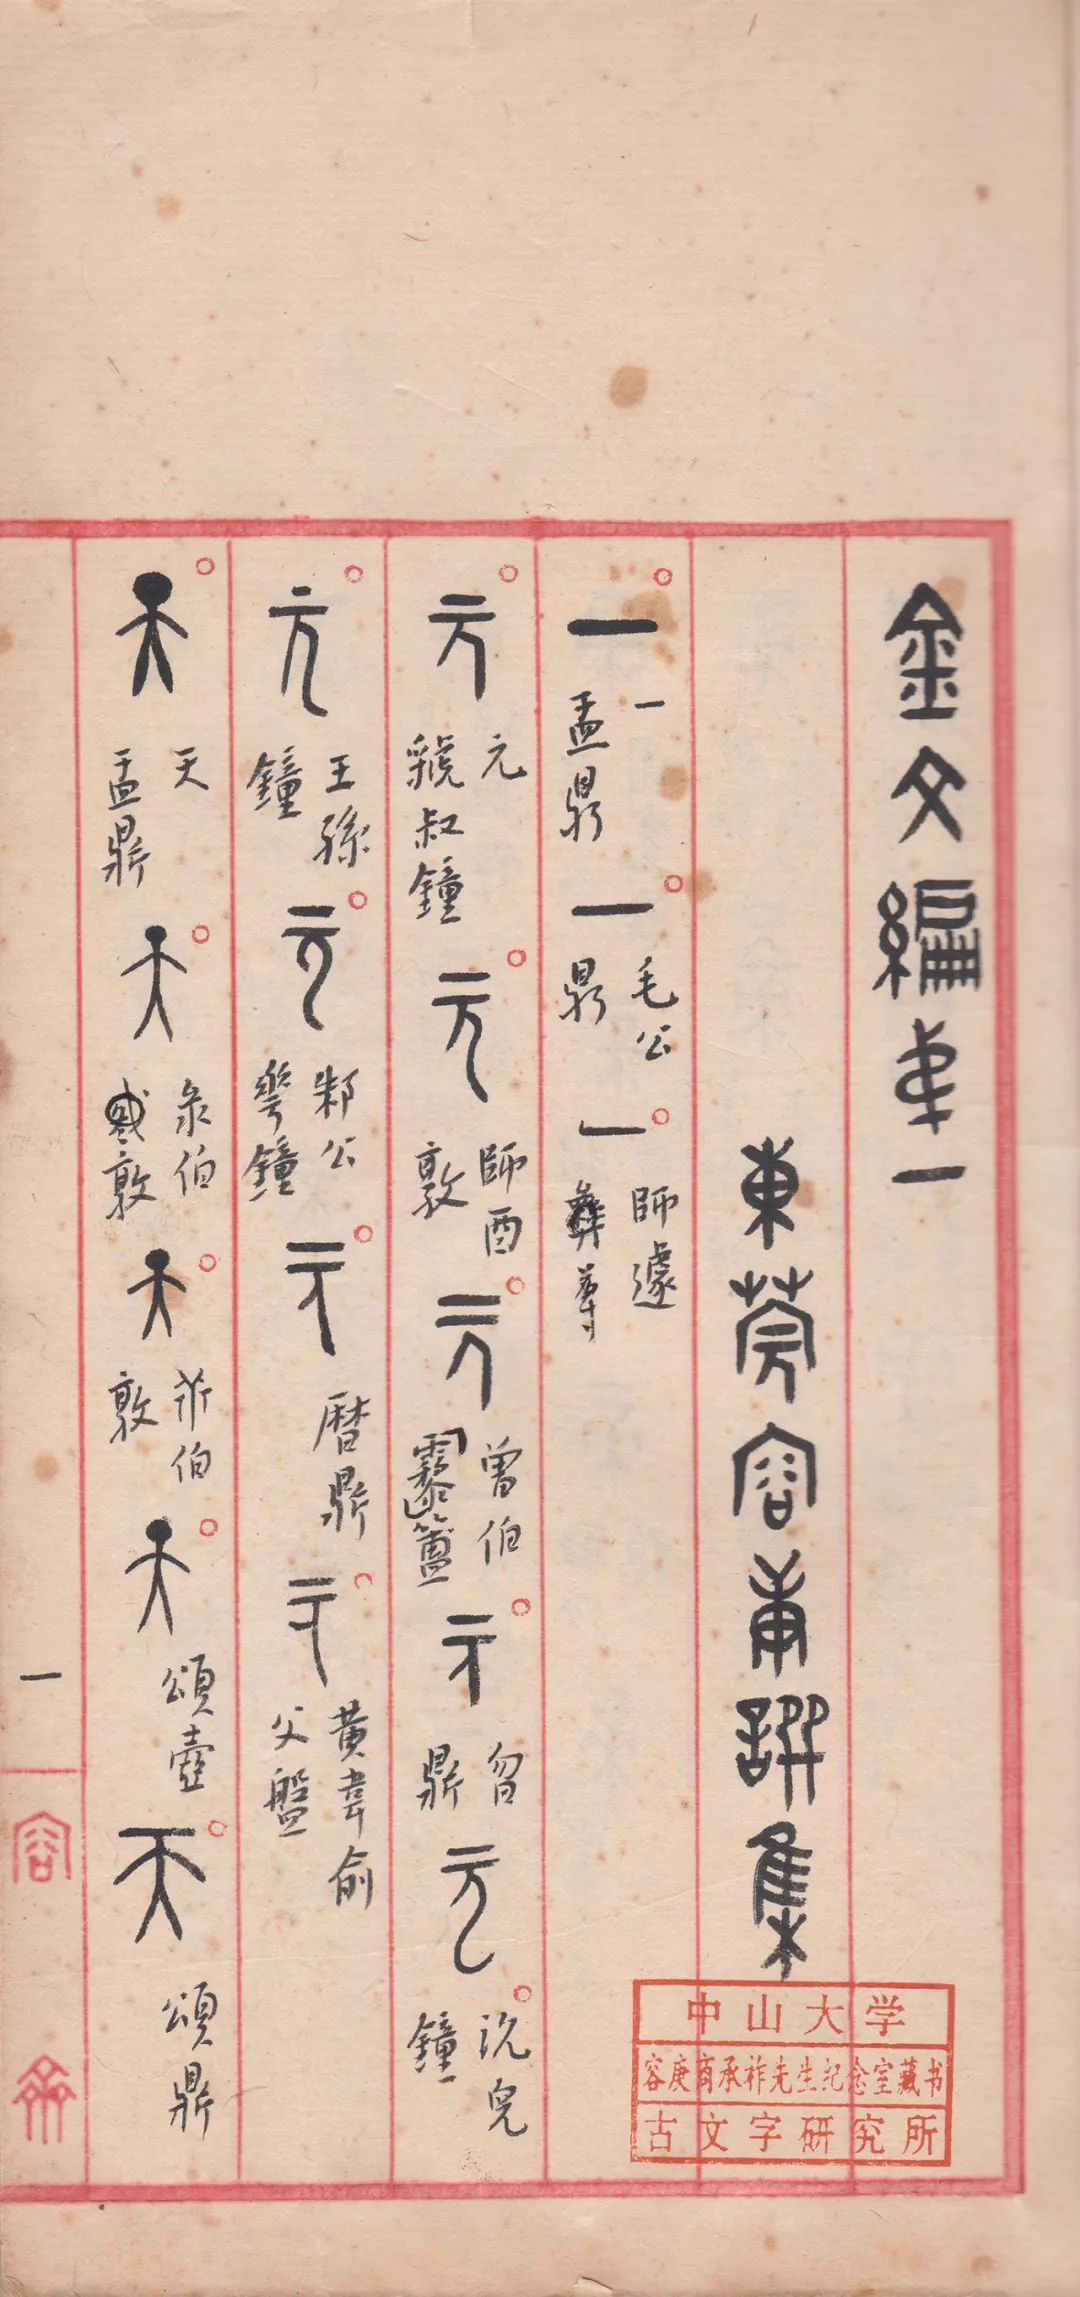 金文編弟一
東莞容庚譔集
一 一 盂鼎 一 毛公鼎 一 師遽彝尊
元 元 虢叔鐘 元 師酉敦 元 曾伯霥簠 元 曶鼎 元 沇兒鐘
元 王孫鐘 元 邾公華鐘 元 曆鼎 元 黃韋俞父盤
天 天 盂鼎 天 彔伯敦 天 𣄰伯敦 天 頌壺 天 頌鼎
一
容
中山大学
容庚商承祚先生纪念室藏书
古文字研究所